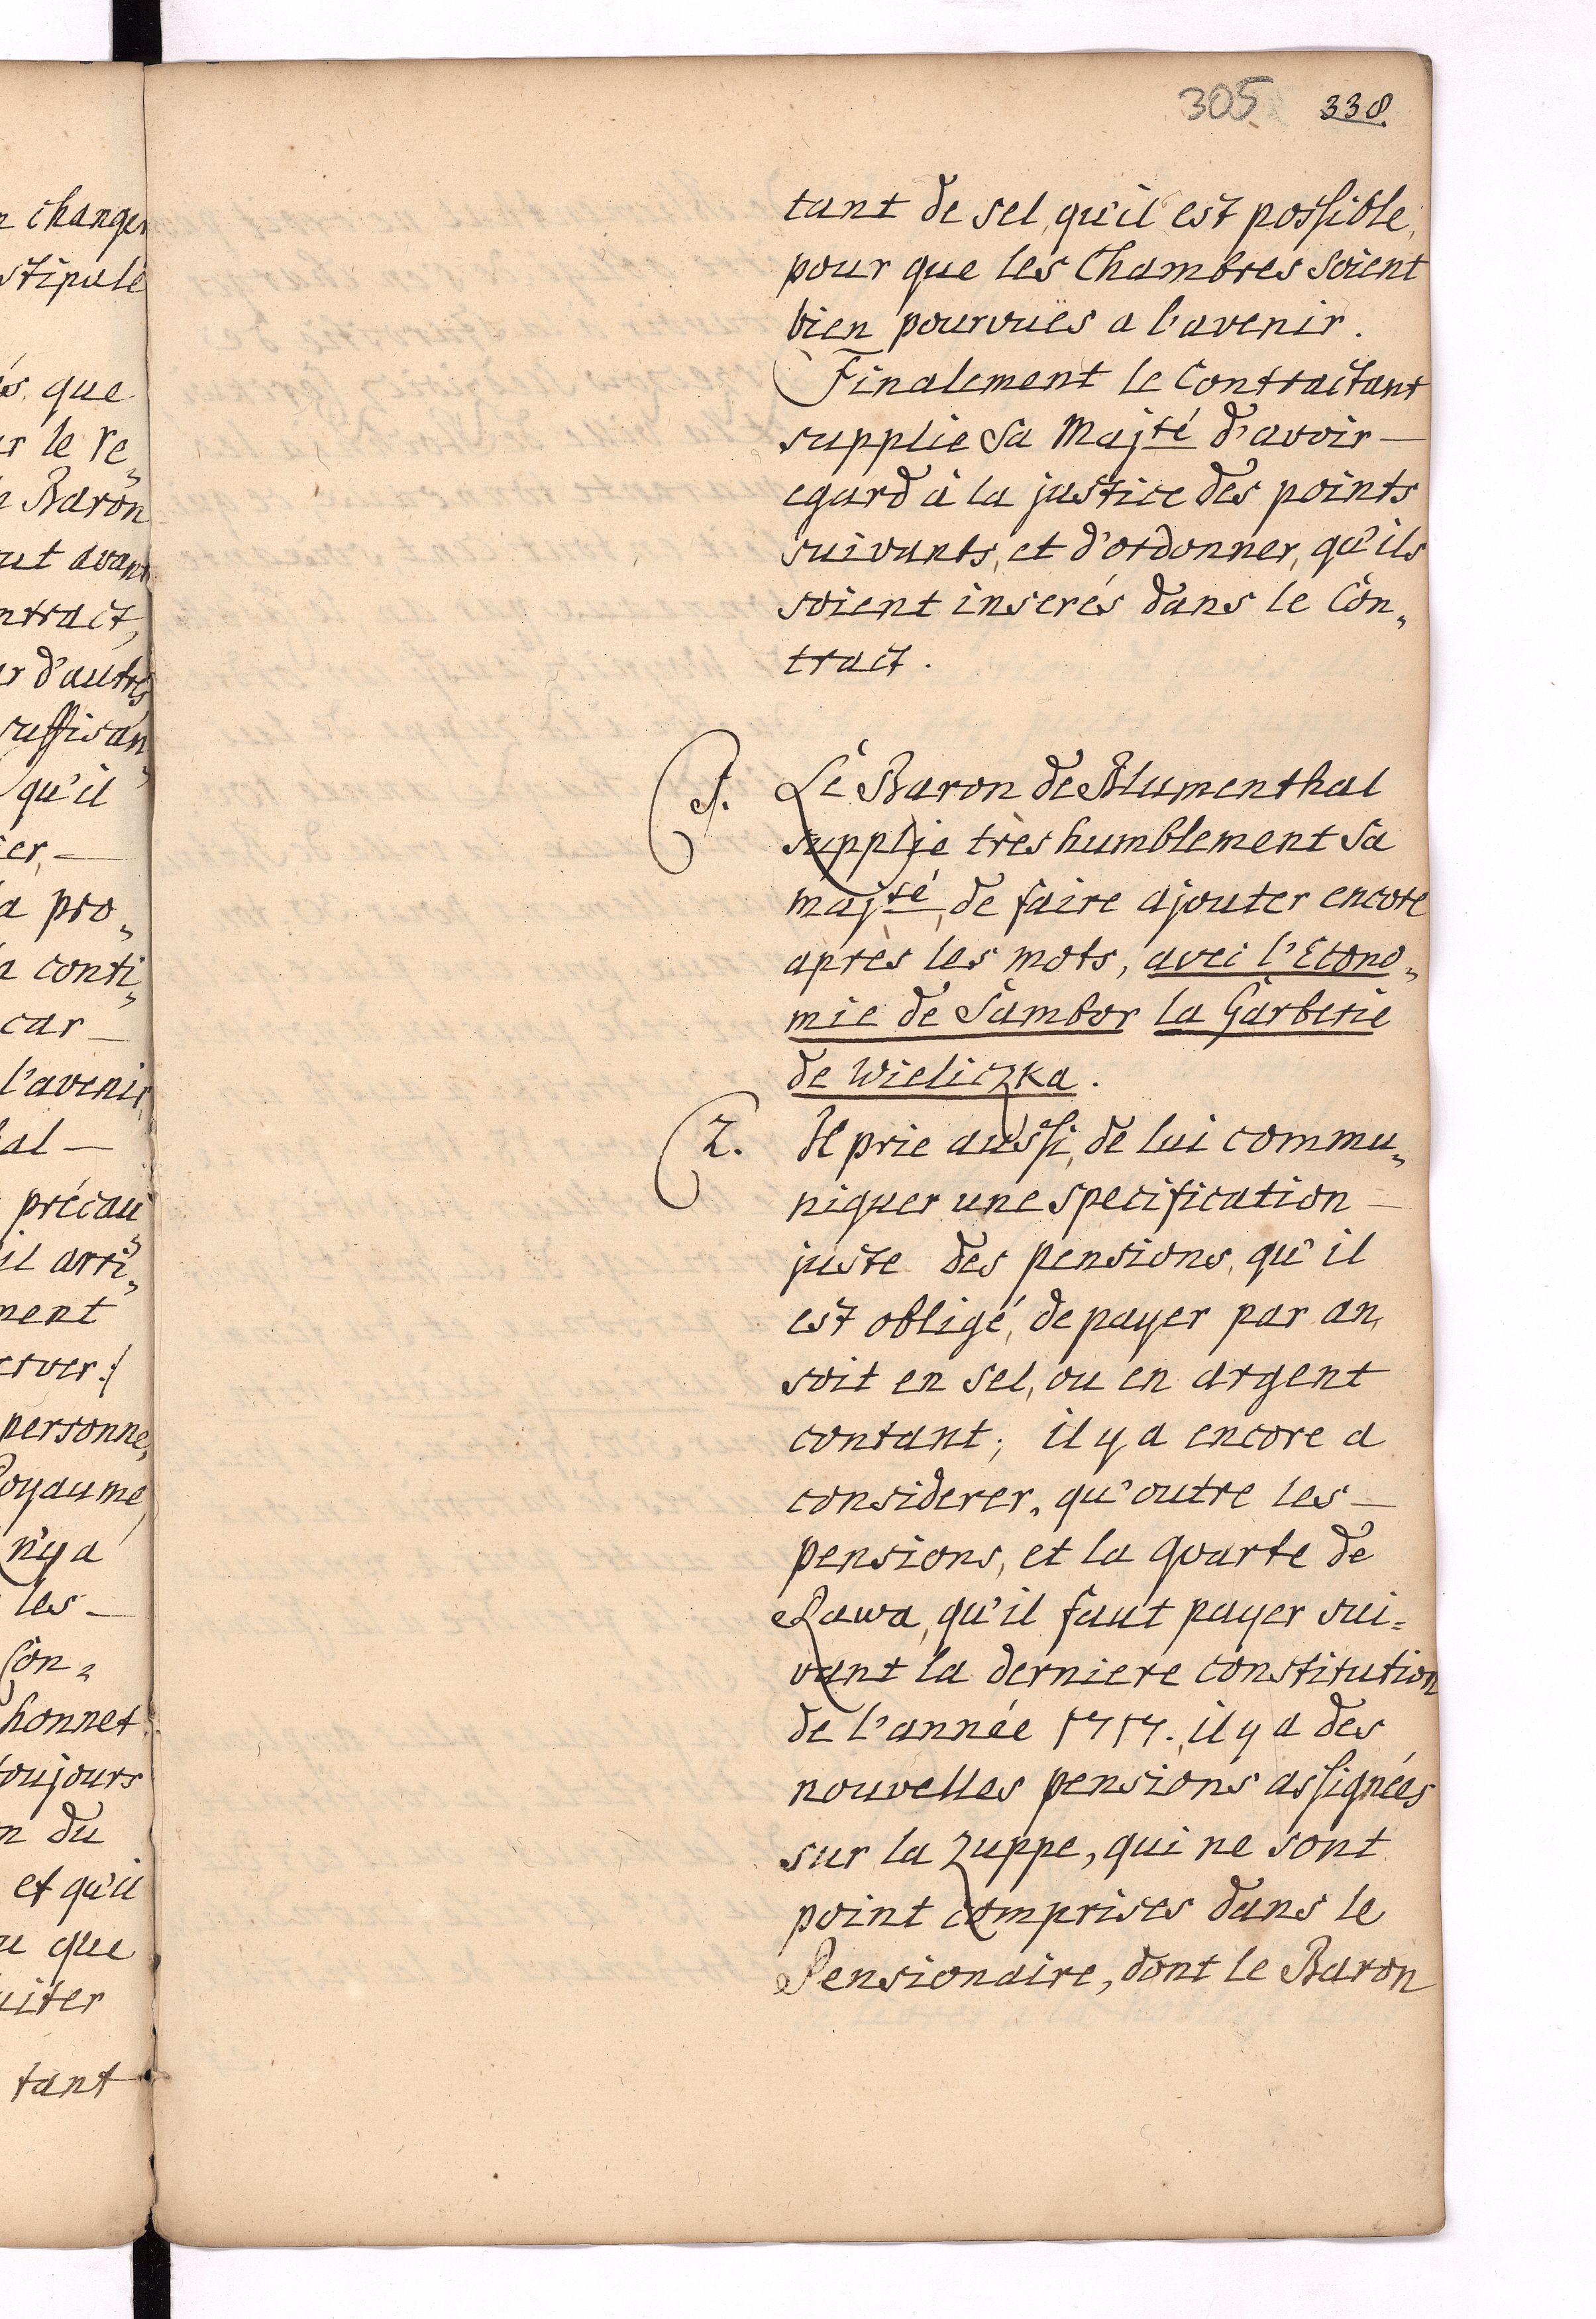 n changer
stipulé
és, que
ur le re„
n Baron
ut avant
ntract,
ur d'autres
suffisan„
qu'il
er, —
a pro„
a conti„
car —
l'avenir,
al —
précau„
il arri„
ment
erver.
personne,
Royaume,
n'y a
les —
Con„
honnet
toujours
n du
et qu'il
u que
uiter
tant
305 338.
tant de sel, qu'il est possible,
pour que les Chambres soient
bien pourvuës a l'avenir.
Finalement le Contractant
supplie Sa Majté d'avoir —
egard à la justice des points
suivants, et d'ordonner, qu'ils
soient inserés dans le Con„
tract.
1. Le Baron de Blumenthal
supplie très humblement Sa
majté, de faire ajouter encore
après les mots, avec l'Econo„
mie de Sambor la Garberie
de Wieliczka.
2. Il prie aussi, de lui commu„
niquer une specification —
juste des pensions, qu'il
est obligé, de payer par an,
soit en sel, ou en argent
contant; il y a encore a
considerer, qu'outre les —
pensions, et la quarte de
Rawa, qu'il faut payer sui=
vant la derniere constitution
de l'année 1717., il y a des
nouvelles pensions assignées
sur la Zuppe, qui ne sont
point comprises dans le
Pensionaire, dont le Baron